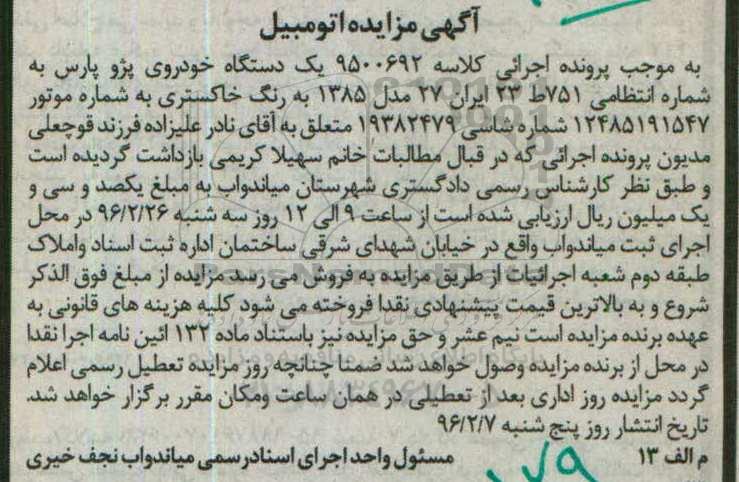 آگهی مزایده اتومبیل
به موجب پرونده اجرائی کلاسه ۹۵۰۰۶۹۲ یک دستگاه خودروی پژو پارس به
شماره انتظامی ۷۵۱ط ۲۳ ایران ۲۷ مدل ۱۳۸۵ به رنگ خاکستری به شماره موتور
۱۲۴۸۵۱۹۱۵۴۷ شماره شاسی ۱۹۳۸۲۴۷۹ متعلق به آقای نادر علیزاده فرزند قوجعلی
مدیون پرونده اجرائی که در قبال مطالبات خانم سهیلا کریمی بازداشت گردیده است
و طبق نظر کارشناس رسمی دادگستری شهرستان میاندواب به مبلغ یکصد و سی و
یک میلیون ریال ارزیابی شده است از ساعت ۹ الی ۱۲ روز سه شنبه ۹۶/۲/۲۶ در محل
اجرای ثبت میاندواب واقع در خیابان شهدای شرقی ساختمان اداره ثبت اسناد واملاک
طبقه دوم شعبه اجرائیات از طریق مزایده به فروش می رسد مزایده از مبلغ فوق الذکر
شروع و به بالاترین قیمت پیشنهادی نقدا فروخته می شود کلیه هزینه های قانونی به
عهده برنده مزایده است نیم عشر و حق مزایده نیز باستناد ماده ۱۳۲ ائین نامه اجرا نقدا
در محل از برنده مزایده وصول خواهد شد ضمنا چنانچه روز مزایده تعطیل رسمی اعلام
گردد مزایده روز اداری بعد از تعطیلی در همان ساعت ومکان مقرر برگزار خواهد شد.
تاریخ انتشار روز پنج شنبه ۹۶/۲/۷
م الف ۱۳ مسئول واحد اجرای اسنادرسمی میاندواب نجف خیری
ParsNamadData